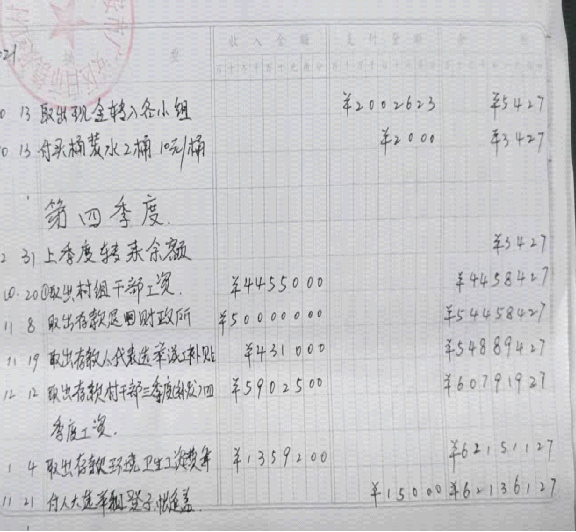 021
收入金额 支付金额 余额
0 13 取出现金转入各小组 ¥2002623 ¥5427
0 13 付买桶装水2桶 10元/桶 ¥2000 ¥3427
第四季度
2 31 上季度转来余额 ¥3427
20 取出村组干部工资. ¥4455000 ¥4458427
11 8 取出存款退回财政所 ¥50000000 ¥54458427
11 19 取出存款人代表选举误工补贴 ¥431000 ¥54889427
12 12 取出存款村干部三季度补发及四 ¥5902500 ¥60791927
季度工资.
1 4 取出存款环境卫生工资费等 ¥1359200 ¥62151127
11 21 付人大选举租登子、帐篷盖 ¥15000 ¥62136127